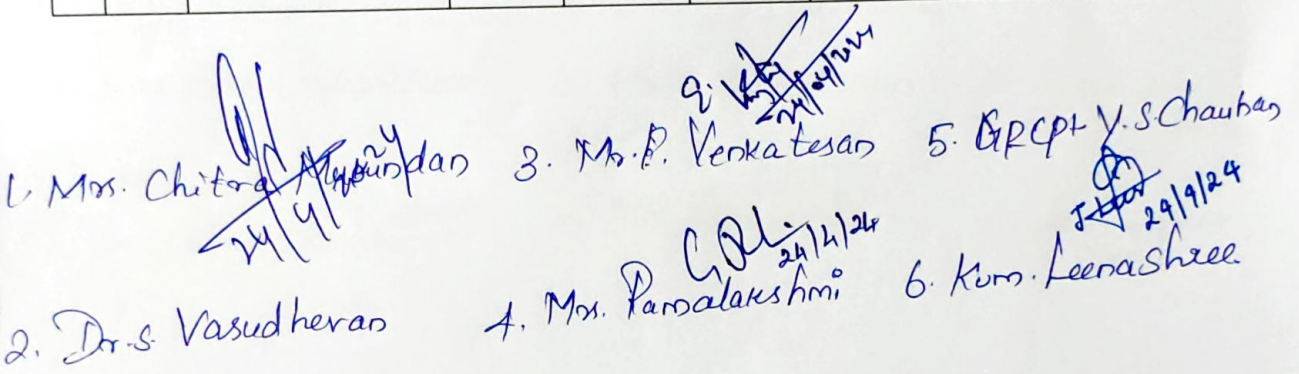 1. Mrs. Chitra
24/4/2024
2. Dr. S. Vasudhevan
3. Mr. P. Venkatesan
24/04/2024
4. Mrs. Pamalakshmi
24/4/24
5. GRCPt Y.S. Chauhan
6. Kum. Leenashree
24/4/24